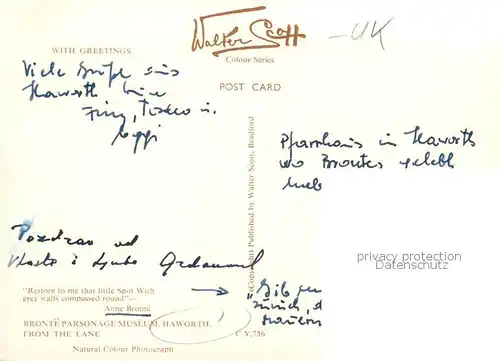 Walter Scott
-UK
WITH GREETINGS
Colour Series
Viele Grüße aus
Haworth
POST CARD
Pfarrhaus in Haworth
wo Brontes gelebt
(Copyright) Published by Walter Scott, Bradford
privacy protection
Datenschutz
Pozdrav od
Vlaste i Ljube
"Restore to me that little Spot With
grey walls compassed round"—
Anne Brontë
→ „Gib
zurück,
BRONTË PARSONAGE MUSEUM, HAWORTH,
FROM THE LANE
C Y.756
Natural Colour Photograph